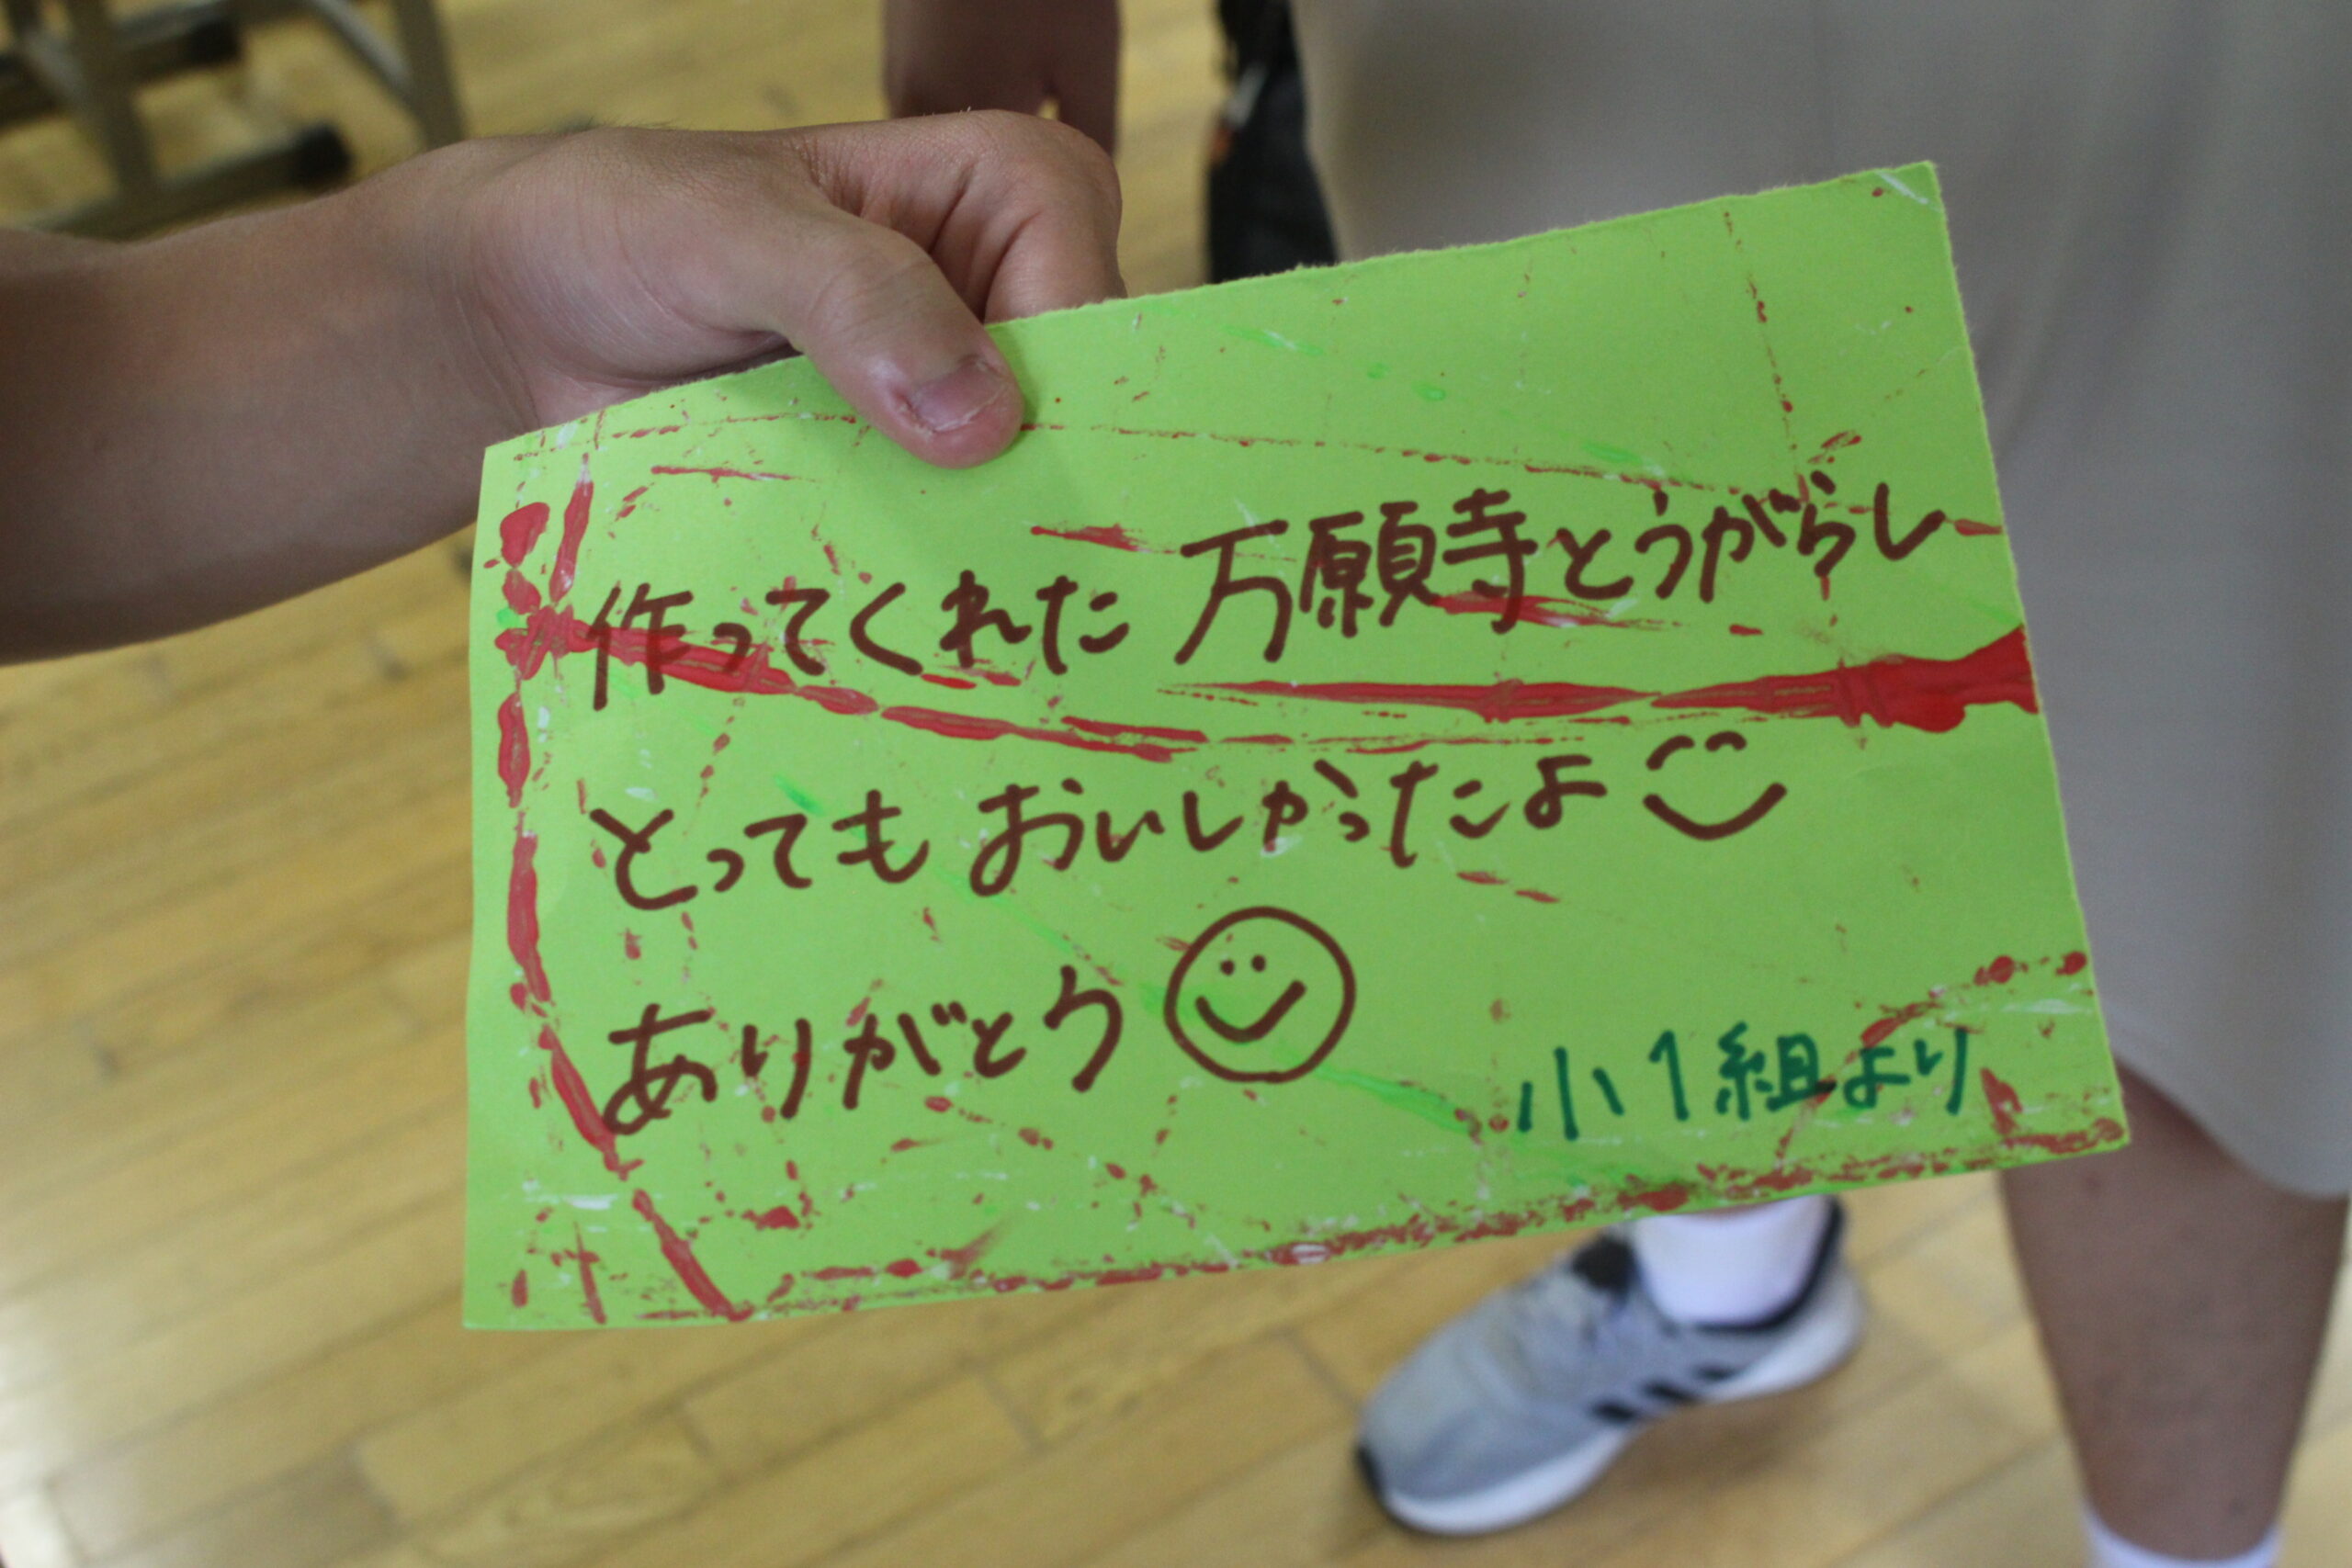 作ってくれた 万願寺とうがらし
とっても おいしかったよ
ありがとう
小1組より